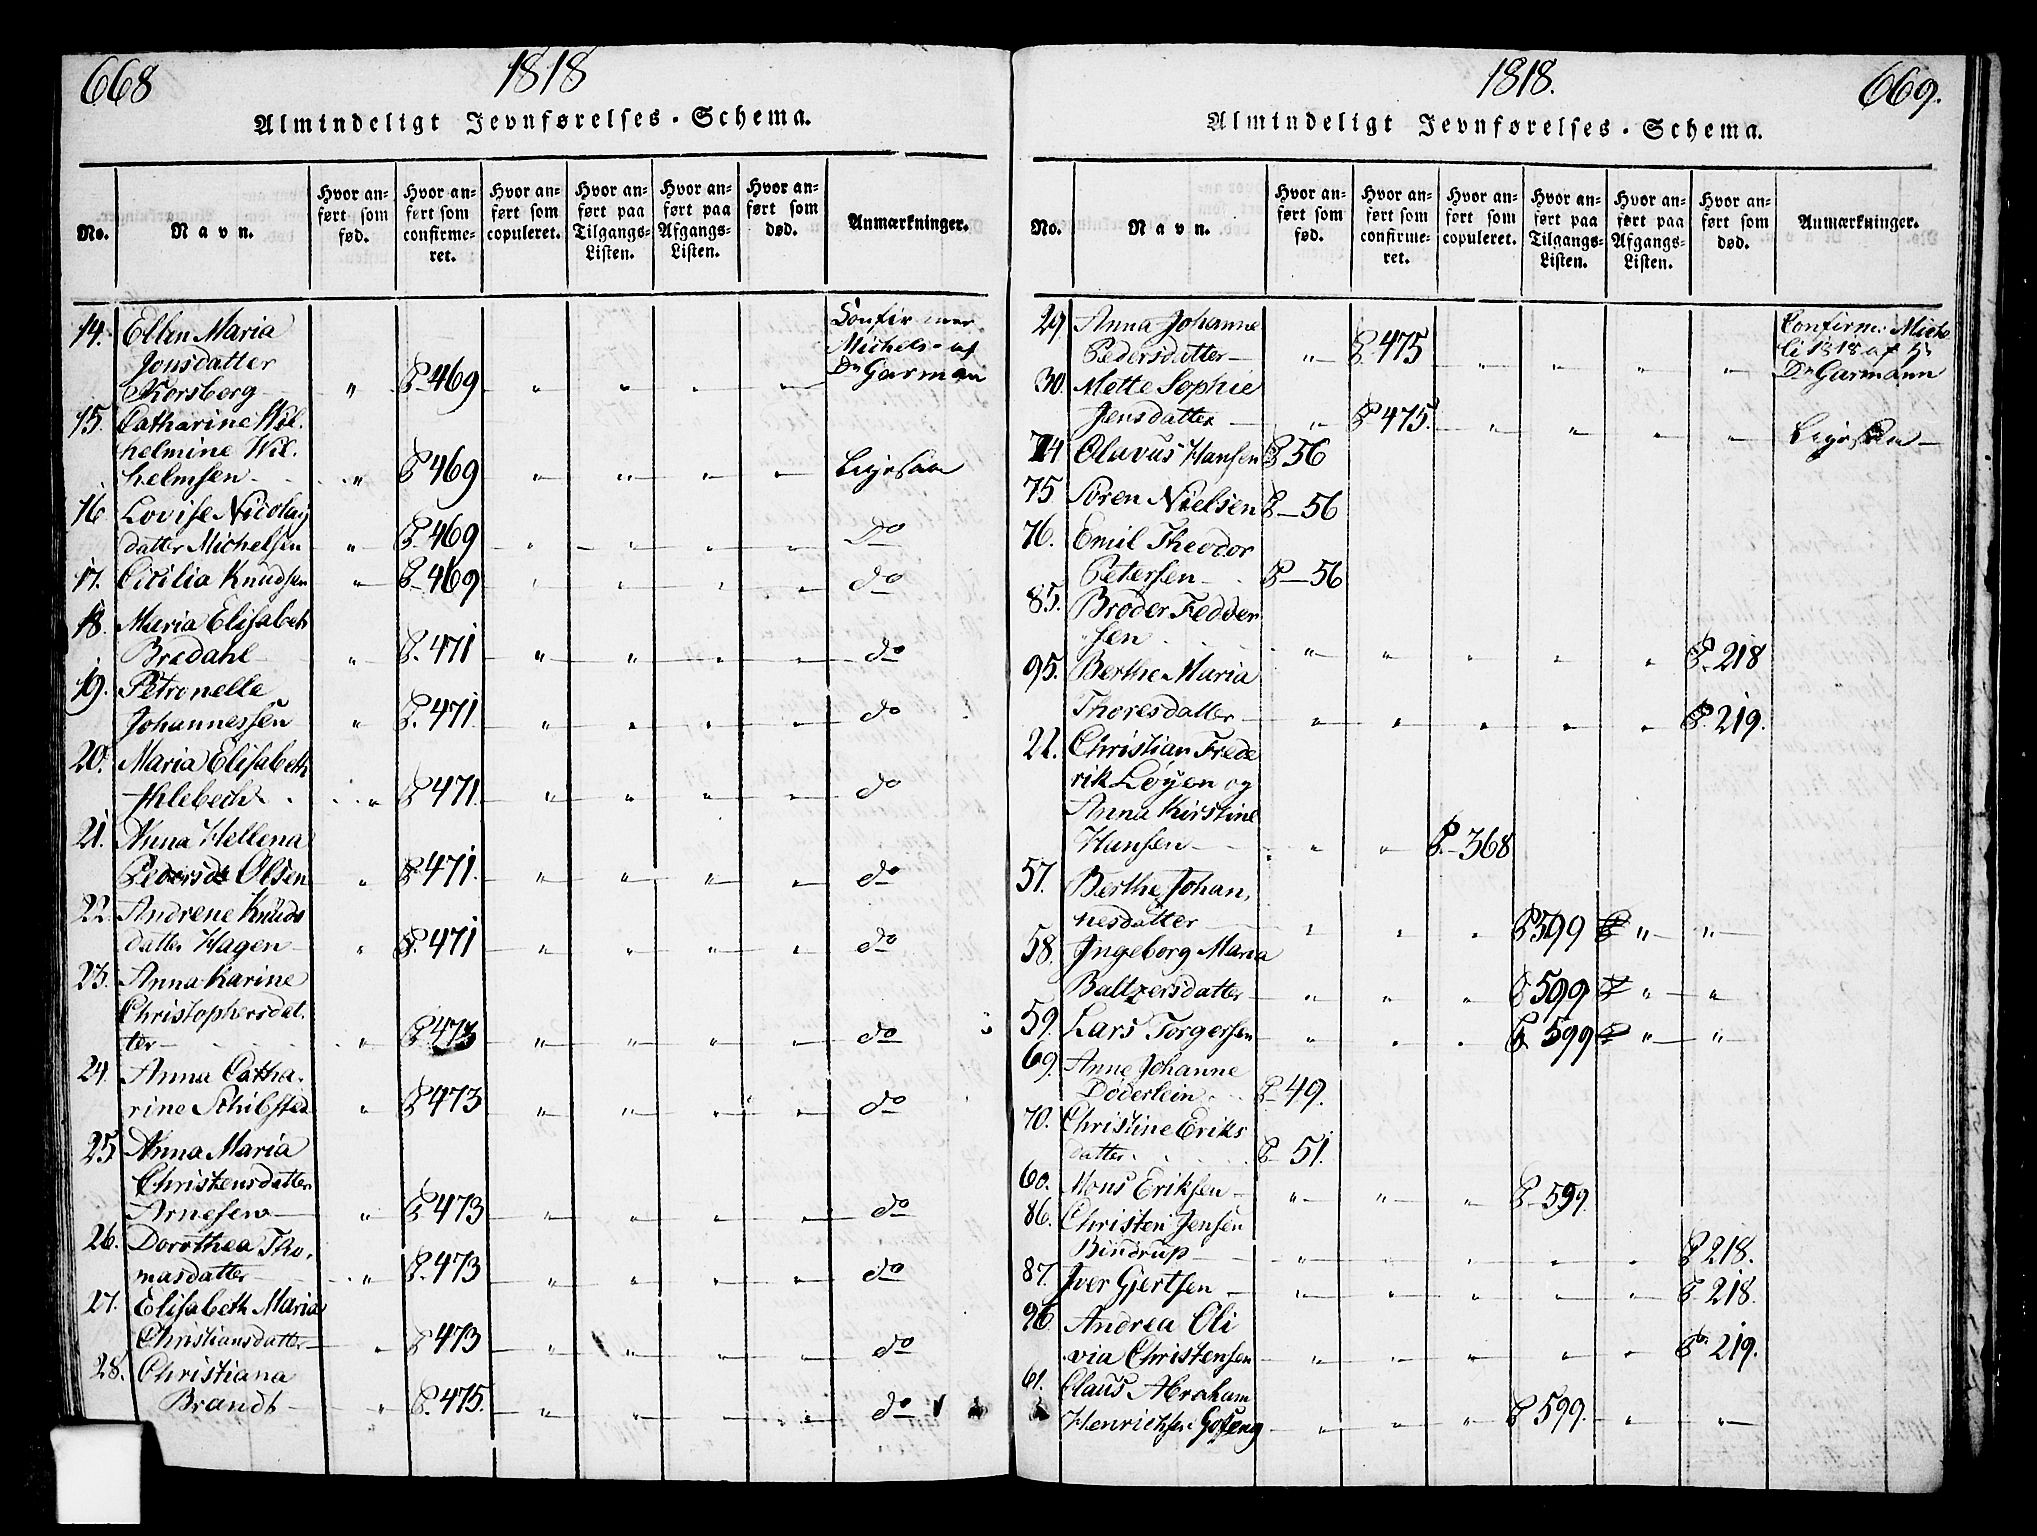 668
1818
Almindeligt Jevnførelses-Schema.
No.
Navn.
Hvor an-
ført som
fød.
Hvor an-
ført som
confirme-
ret.
Hvor an-
ført som
copuleret.
Hvor an-
ført paa
Tilgangs-
Listen.
Hvor an-
ført paa
Afgangs-
Listen.
Hvor an-
ført som
død.
Anmærkninger.
14. Ellen Maria Confirmer.
Jonsdatter Michels- af
Korsberg " P 469 " " " " Dn Garman
15. Catharine Wil-
helmine Wil-
helmsen " P 469 " " " " Ligesaa
16 Lovise Nicolay
datter Michelsen " P 469 " " " " Do
17. Cicilia Knudsen " P 469 " " " " do
18. Maria Elisabeth
Bredahl " P. 471 " " " " do
19. Petronelle
Johannessen " P. 471 " " " " do
20. Maria Elisabeth
Ihlebech " P 471. " " " " do
21. Anna Hellena
Pedersdr Olsen " P 471. " " " " do
22. Andrene Knuds
datter Hagen " P. 471 " " " " do
23. Anna Karine
Christophersdat-
ter " P 473 " " " " do
24. Anna Catha-
rine Schibsted " P 473 " " " " do
25 Anna Maria
Christensdatter
Arnesen " P 473 " " " " do
26. Dorothea Tho-
masdatter " P. 473 " " " " do
27. Elisabeth Maria
Christiansdatter " P 473 " " " " do
28. Christiana
Brandt " P. 475. " " " " do
1818.
669.
Almindeligt Jevnførelses-Schema.
No.
Navn.
Hvor an-
ført som
fød.
Hvor an-
ført som
confirme-
ret.
Hvor an-
ført som
copuleret.
Hvor an-
ført paa
Tilgangs-
Listen.
Hvor an-
ført paa
Afgangs-
Listen.
Hvor an-
ført som
død.
Anmærkninger.
29 Anna Johanne Confirm: Miche
Pedersdatter " P 475 " " " " li 1818 af
30. Mette Sophie Dn Garmann
Jensdatter " P 475. " " " " Ligesaa
74 Olavus Hansen P 56
75 Søren Nielsen P 56
76. Emil Theodor
Petersen P 56
85. Broder Fedder
sen " " " " " P. 218
95. Berthe Maria
Thoresdatter " " " " " P. 219.
22. Christian Frede
rik Løyen og
Anna Kirstine
Hansen " " P. 368
57. Berthe Johan-
nesdatter " " " P 599 " "
58. Ingeborg Maria
Baltzersdatter " " " P 599 " "
59. Lars Torgersen " " " P. 599 " "
69. Anne Johanne
Døderlein P 49.
70. Christine Eriks
datter P 51.
60. Mons Eriksen " " " P 599.
86. Christen Jensen
Bindrup " " " " " P 218.
87. Iver Gjertsen " " " " " P 218.
96 Andrea Oli
via Christensen " " " " " P. 219.
61. Claus Abraham
Henrichsen " " " P 599. " "